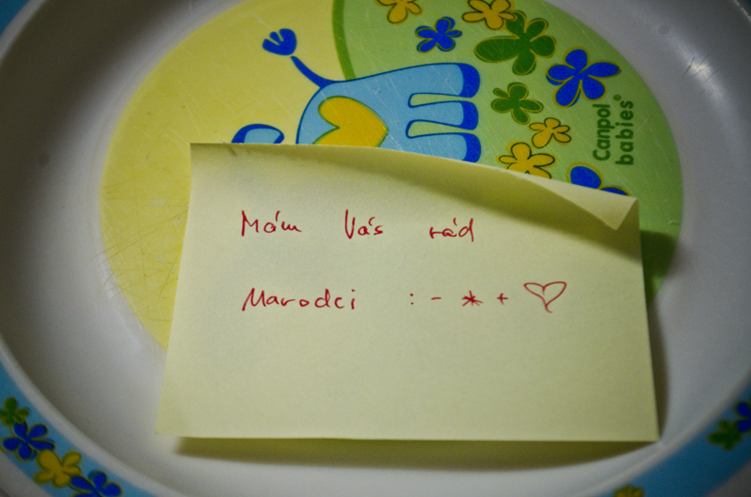 Canpol
babies®
Mám Vás rád
Marodci :-* + ♡